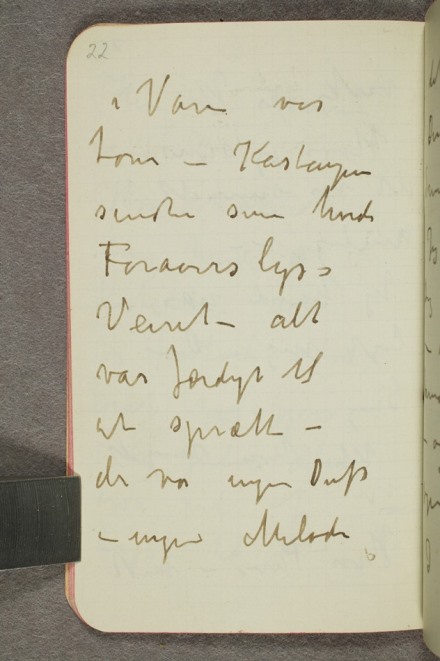 22
Varm var
tom – Kastanjen
sendte sine hvide
Foraars lys
Veiret – alt
var færdigt til
at sprætte –
der var ingen Duft
– ingen Melodi